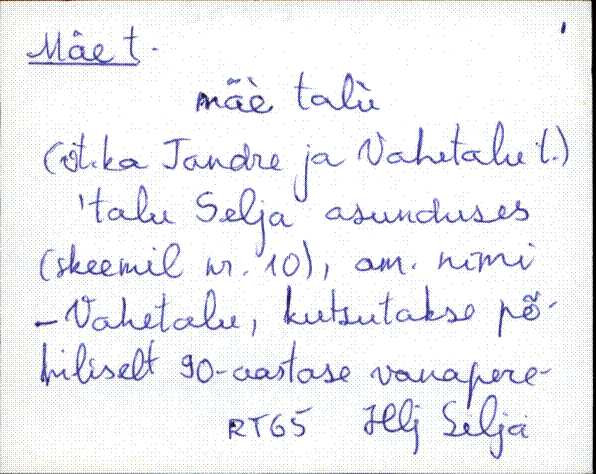 Mäe t.
mäè talù
(vt. ka Tandre ja Vahetalu t.)
'talu Selja asunduses
(skeemil nr. 10), am. nimi
- Vahetalu, kutsutakse põ-
hiliselt 90-aastase vanapere-
RT65 Hlj Selja